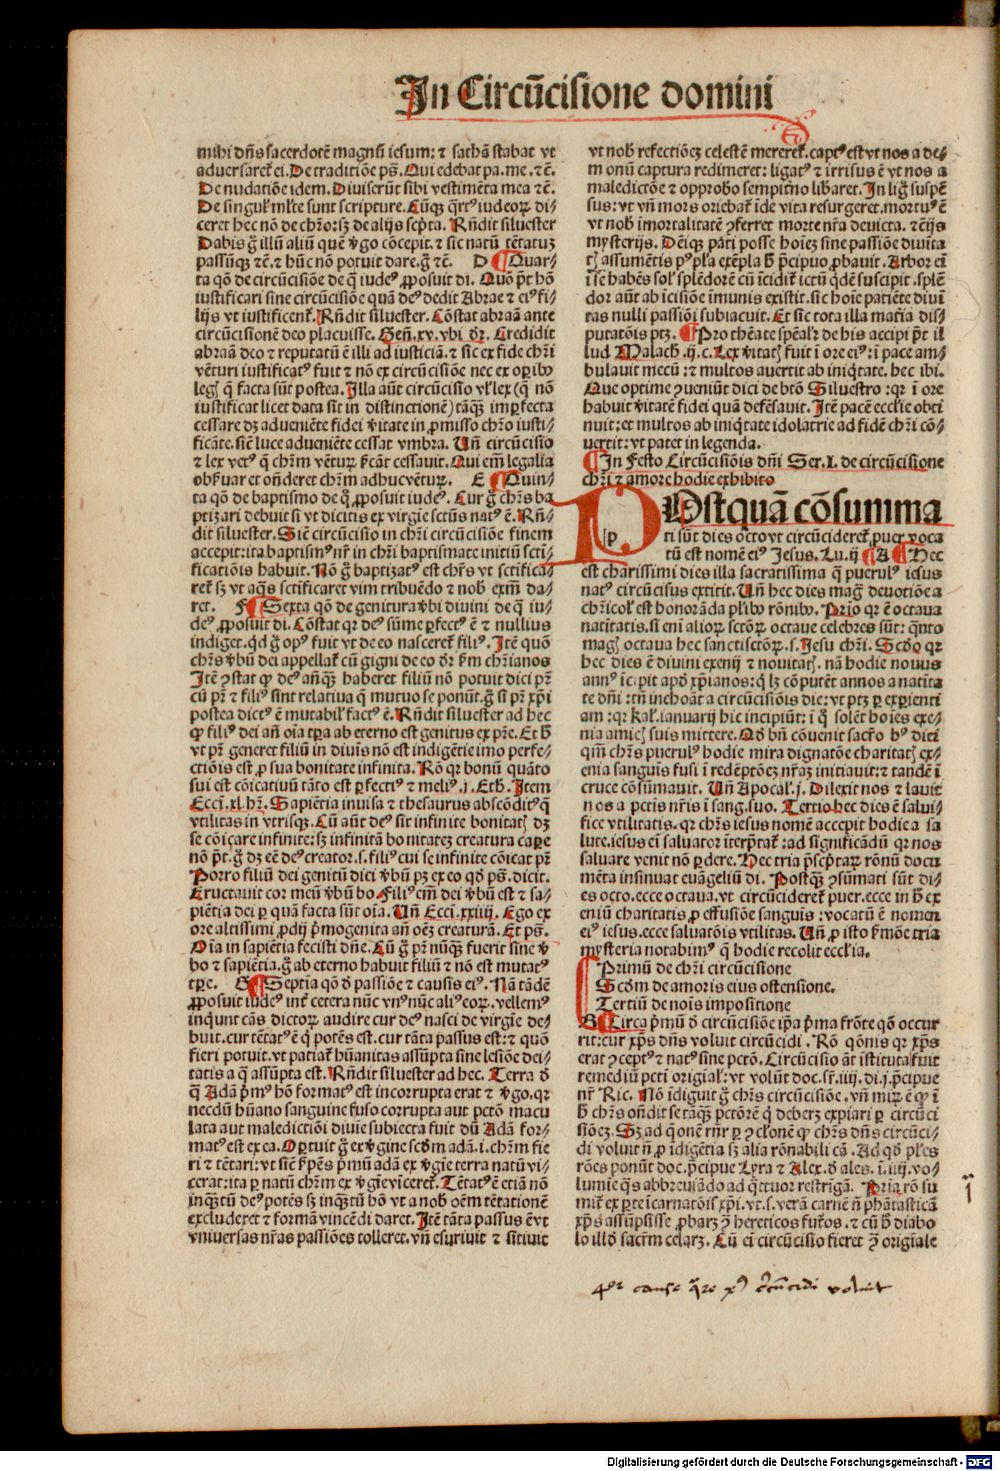 In Circūcisione domini
mihi dn̄s sacerdotē magnū iesum: ⁊ sathā stabat vt
aduersaret̉ ei. De traditiōe ps̄. Qui edebat pa. me. ⁊c̄.
De nudatiōe idem. Diuiserūt sibi vestimēta mea ⁊c̄.
De singul' ml̄te sunt scripture. Cūq̄ q̄rt' iudeoꝝ di/
ceret hec nō de chr̄o sꝫ de alijs scp̄ta. Rn̄dit siluester
Dabis g̊ illū aliū quē v̊go cōcepit. ⁊ sic natū tētatuꝫ
passūqꝫ ⁊c̄. ⁊ hūc nō potuit dare. g̊ ⁊c̄. D ¶ Quar/
ta qō de circūcisiōe de q̄ iude⁹ ꝓposuit di. Quō pt̄ hō
iustificari sine circūcisiōe quā de⁹ dedit Abrae ⁊ ei⁹ fi/
lijs vt iustificent̉. Rn̄dit siluester. Cōstat abraā ante
circūcisionē deo placuisse. Gen̄. xv. vbi dr̄. Credidit
abraā deo ⁊ reputatū ē illi ad iusticiā. ⁊ sic ex fide chr̄i
vēturi iustificat⁹ fuit ⁊ nō ex circūcisiōe nec ex oꝑibꝰ
legꝭ q̄ facta sūt postea. Illa aūt circūcisio vl' lex (q̄ nō
iustificat licet data sit in distinctionē) tāqꝫ imꝑfecta
cessare dꝫ adueniēte fidei v̊itate in ꝓmisso chr̄o iusti/
ficāte. sic̄ luce adueniēte cessat vmbra. Vn̄ circūcisio
⁊ lex vet⁹ q̄ chr̄m vētuꝝ p̄ficāt cessauit. Qui em̄ legalia
obs̄uar et on̄deret chr̄m adhuc vētuꝝ. E ¶ Quin/
ta qō de baptismo de q̊ ꝓposuit iude⁹. Cur g̊ chr̄s ba
ptizari debuit si vt dicitis ex virgīe sctūs nat⁹ ē. Rn̄/
dit siluester. Sic̄ circūcisio in chr̄i circūcisiōe finem
accepit: ita baptism⁹ nr̄ in chr̄i baptismate initiū scti/
ficatiōis habuit. Nō g̊ baptizat⁹ est chr̄s vt sctifica/
ret̉ sꝫ vt aq̄s sctificaret vim tribuēdo ⁊ nob̄ exm̄ da/
ret. F ¶ Sexta qō de genitura v̊bi diuini de q̄ iu/
de⁹ ꝓposuit di. Cōstat qꝛ de⁹ sūme ꝑfect⁹ ē ⁊ nullius
indiget. qd̄ g̊ op⁹ fuit vt de eo nasceret̉ fili⁹. Itē quō
chr̄s v̊bū dei appellat̉ cū gigni de eo dr̄ s̄m chr̄ianos
Itē ꝯstat ꝙ de⁹ an̄qꝫ haberet filiū nō potuit dici pr̄
cū pr̄ ⁊ fili⁹ sint relatiua q̄ mutuo se ponūt. g̊ si pr̄ xp̄i
postea dict⁹ ē mutabil' fact⁹ ē. Rn̄dit siluester ad hec
ꝙ fili⁹ dei an̄ oīa tꝑa ab eterno est genitus ex pr̄e. Et h̄
vt pr̄ generet filiū in diuīs nō est indigētie imo perfe/
ctiōis est ꝓ sua bonitate infinita. Rō qꝛ bonū quāto
sui est cōicatiuū tāto est ꝑfecti⁹ ⁊ meli⁹. j. Eth. Item
Ecci. xl. hr̄. Sapiētia inuisa ⁊ thesaurus abscōdit⁹ q̄
vtilitas in vtrisqꝫ. Cū aūt de⁹ sit infinite bonitatꝭ dꝫ
se cōicare infinite: sꝫ infinitā bonitatez creatura capere
nō pt̄. g̊ dꝫ eē de⁹ creator. s. fili⁹ cui se infinite cōicat pr̄
Porro filiū dei genitū dici v̊bū pꝫ ex eo qd̄ ps̄. dicit.
Eructauit cor meū v̊bū bo. Fili⁹ em̄ dei v̊bū est ⁊ sa/
piētia dei ꝑ quā facta sūt oīa. Vn̄ Ecci. xxiiij. Ego ex
ore altissimi ꝓdij p̄mogenita an̄ oēꝫ creaturā. Et ps̄.
Oīa in sapiētia fecisti dn̄e. Cū g̊ pr̄ nūqꝫ fuerit sine v̊
bo ⁊ sapiētia. g̊ ab eterno habuit filiū ⁊ nō est mutat⁹
tꝑe. G ¶ Septīa qō d̄ passiōe ⁊ causis ei⁹. Nā tādē
ꝓposuit iude⁹ int̄ cetera nūc vn⁹ nūc ali⁹ eoꝝ. vellem⁹
inqūnt cās dictoꝝ audire cur de⁹ nasci de virgīe de/
buit. cur tētat⁹ ē q̄ potēs est. cur tāta passus est: ⁊ quō
fieri potuit. vt patiat̉ hūanitas assūpta sine lesiōe dei/
tatis a q̄ assūpta est. Rn̄dit siluester ad hec. Terra d̄
q̄ Adā p̄m⁹ hō format⁹ est incorrupta erat ⁊ v̊go. qꝛ
necdū hūano sanguine fuso corrupta aut pctō macu
lata aut maledictiōi diuie subiecta fuit dū Adā for/
mat⁹ est ex ea. Oꝑtuit g̊ ex v̊gine scd̄m adā. i. chr̄m fie
ri ⁊ tētari: vt sic̄ s̄pēs p̄mū adā ex v̊gie terra natū vi/
cerat: ita ꝑ natū chr̄m ex v̊gie viceret̉. Tētat⁹ ē etiā nō
inqꝫtū de⁹ potēs sꝫ inqꝫtū hō vt a nob̄ oēm tētationē
excluderet ⁊ formā vincēdi daret. Itē tāta passus ē vt
vniuersas nr̄as passiōes tolleret. vn̄ esuriuit ⁊ sitiuit
vt nob̄ refectiōeꝫ celestē mereret̉. capt⁹ est vt nos a de/
monū captura redimeret: ligat⁹ ⁊ irrisus ē vt nos a
maledictōe ⁊ opprobo sempit̄no libaret. In lig̊ suspē
sus: vt vn̄ mors oriebat̉ īde vita resurgeret. mortu⁹ ē
vt nob̄ imortalitatē ꝯferret morte nr̄a deuicta. ⁊ ē ijs
mysterijs. Dēiqꝫ pāti posse hoīeꝫ sine passiōe diuīta
tꝭ assumētis p⁹ pl'a exēpla h̄ p̄cipuo ꝓbauit. Arbor eī
ī se habēs sol' splēdorē cū īcidit̉ ictū qdē suscipit. splē
dor aūt ab īcisiōe īmunis existit. sic hoīe patiēte diuī
tas nulli passiōi subiacuit. Et sic tota illa mat̄ia dis/
putatōis ptꝫ. ¶ Pro theāte speāl'r de his accipi pt̄ il
lud Malach. ij. c. Lex v̊itatꝭ fuit ī ore ei⁹: ī pace am/
bulauit mecū: ⁊ multos auertit ab iniq̄tate. hec ibi.
Que optime ꝯueniūt dici de btō Siluestro: qꝛ ī ore
habuit v̊itatē fidei quā defēsauit. Itē pacē ecclīe obti
nuit: et multos ab iniq̄tate idolatrie ad fidē chr̄i cō/
uertit: vt patet in legenda.
¶ In Festo Circūcisiōis dn̄i Ser. I. de circūcisione
chr̄i ⁊ amore hodie exhibito
POstquā cōsumma
ti sūt dies octo vt circūcideret̉ puer voca
tū est nomē ei⁹ Jesus. Lu. ij ¶ A ¶ Hec
est charissimi dies illa sacratissima q̄ puerul⁹ iesus
nat⁹ circūcisus extitit. Vn̄ hec dies mag̊ deuotiōe a
chr̄icol' est honorāda pl'ibꝰ rōnibꝰ. Prio qꝛ ē octaua
natiuitatis. si enī alioꝝ sctōꝝ octaue celebres sūt: q̄nto
magꝭ octaua hec sanctisctōꝝ. s. Jesu chr̄i. Scd̄o qꝛ
hec dies ē diuini exenij ⁊ nouitatꝭ. nā hodie nouus
ann⁹ īcipit apd̄ xp̄ianos: q̄ lꝫ cōputēt annos a natīta
te dn̄i: tn̄ inchoāt a circūcisiōis die: vt ptꝫ ꝑ exꝑienti
am: qꝛ kal'. ianuarij hic incipiūt: ī q̊ solēt hoīes exe/
nia amicꝭ suis mittere. Qd̄ bn̄ cōuenit sacr̄o h⁹ dici
qm̄ chr̄s puerul⁹ hodie mira dignatōe charitatꝭ ex/
enia sanguīs fusi ī redēptōeꝫ nr̄aꝫ initiauit: ⁊ tandē ī
cruce cōsūmauit. Vn̄ Apocal'. j. Dilexit nos ⁊ lauit
nos a pctīs nr̄is ī sang. suo. Tertio hec dies ē salui/
fice vtilitatis. qꝛ chr̄s iesus nomē accepit hodie a sa
lute. iesus eī saluator īterp̄tat̉: ad significādū qꝛ nos
saluare venit nō ꝑdere. Hec tria p̄sc̄ptaꝝ rōnū docu
mēta insinuat euāgeliū di. Postqꝫ ꝯsūmati sūt di/
es octo. ecce octaua. vt circūcideret̉ puer. ecce in h̄ ex
eniū charitatis ꝓ effusiōe sanguīs: vocatū ē nomen
ei⁹ iesus. ecce saluatōis vtilitas. Vn̄ ꝓ isto s̄mōe tria
mysteria notabim⁹ q̄ hodie recolit eccl'ia.
Primū de chr̄i circūcisione
Scd̄m de amoris eius ostensione.
Tertiū de noīs impositione
B ¶ Circa p̄mū d̄ circūcisiōe ip̄a p̄ma frōte qō occur
rit: cur xp̄s dn̄s voluit circūcidi. Rō qōnis qꝛ xp̄s
erat ꝯcept⁹ ⁊ nat⁹ sine pctō. Circūcisio āt īstituta fuit
remediū pctī origīal': vt volūt doc. sr̄. iiij. di. j. p̄cipue
nr̄ Ric. Nō īdiguit g̊ chr̄s circūcisiōe. vn̄ miꝝ ē ꝙ ī
h̄ chr̄s on̄dit se tāqꝫ pctōrē q̄ deberꝫ expiari ꝑ circūci
siōeꝫ. Sꝫ ad q̄onē rn̄r ꝑ ꝯcl'onē ꝙ chr̄s dn̄s circūci/
di voluit n̄ ꝓ īdigētia sꝫ alia rōnabili cā. Ad qd̄ pl'es
rōes ponūt doc. p̄cipue Lyra ⁊ Alex. d̄ ales. ī. iiij. vo/
lumie q̄s abbreuiādo ad q̄ttuor restrīgā. Pria rō su
mit̉ ex ꝑte īcarnatōis xp̄i. vt. s. verā carnē n̄ phātasticā
xp̄s assūpsisse ꝓbarꝫ ꝯ hereticos fut̉os. ⁊ cū h̄ diabo
lo illd̄ sacr̄m celarꝫ. Cū eī circūcisio fieret ꝯ origīale
4or cause q̄re xp̄s circūcidi voluit